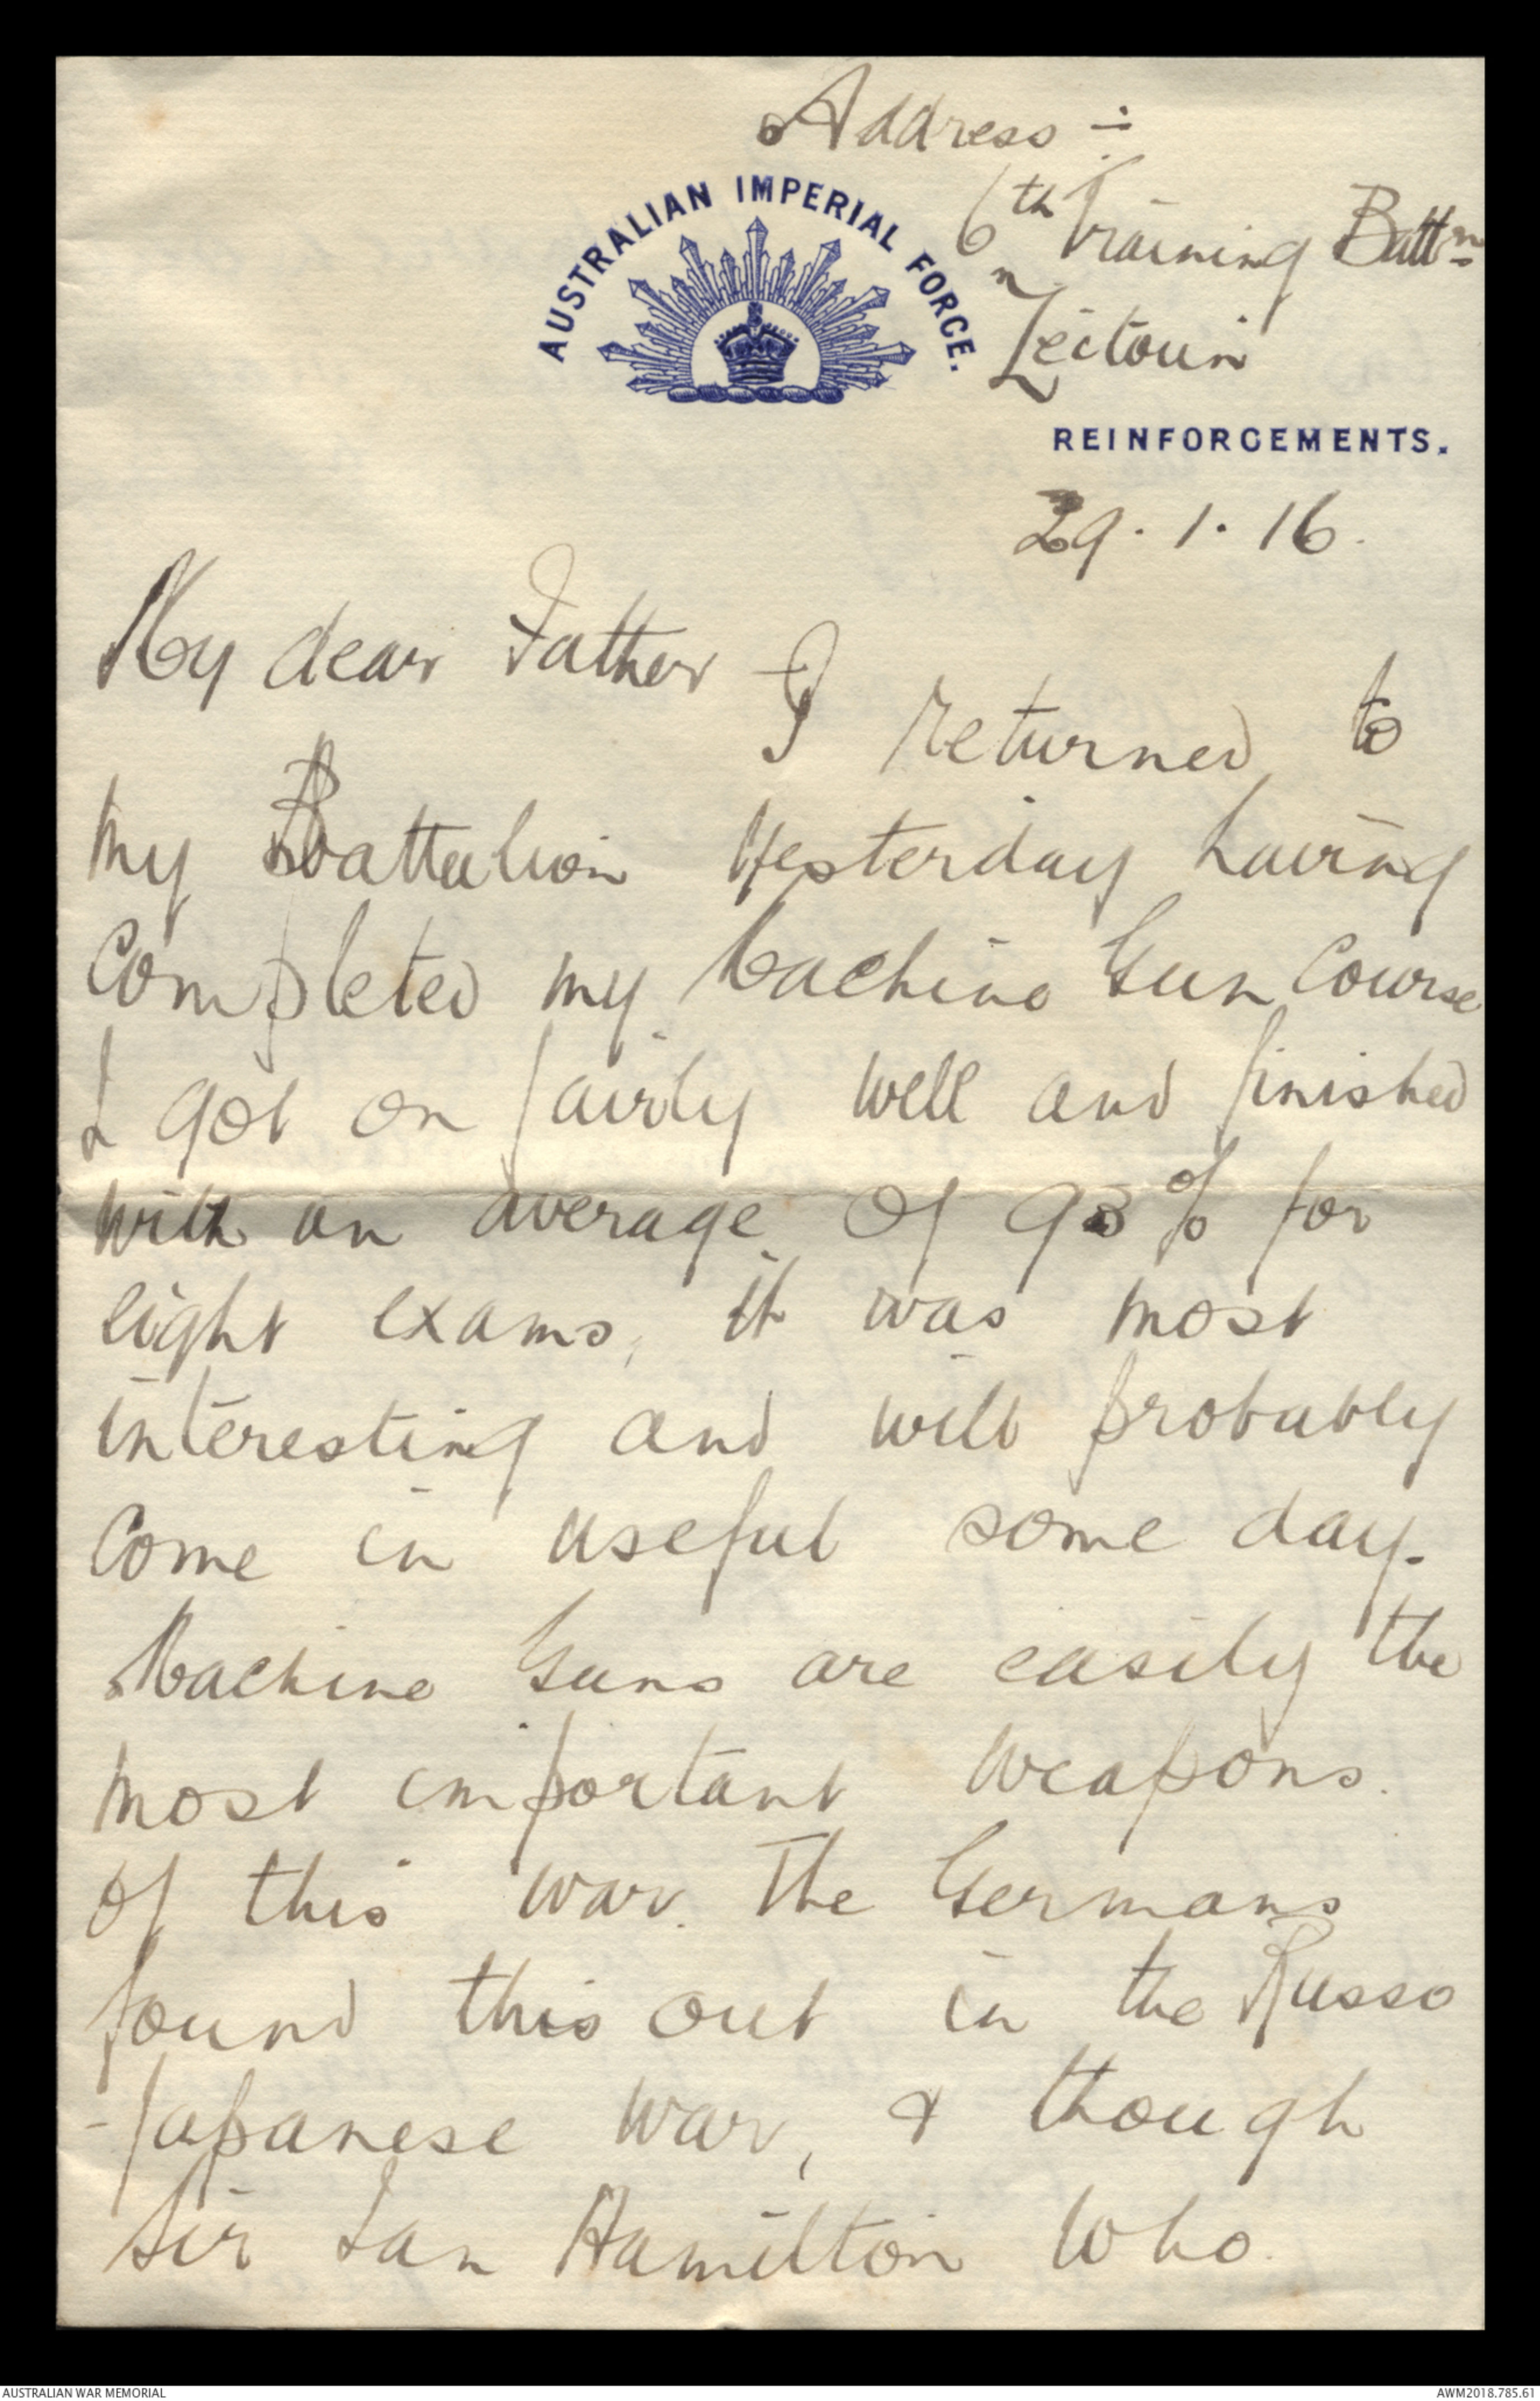 Address :-
AUSTRALIAN IMPERIAL FORCE.
6th Training Battn
Zeitoun
REINFORCEMENTS.
29.1.16.
My dear Father
I returned to
my Battalion yesterday having
completed my Machine Gun Course
I got on fairly well and finished
with an average of 93% for
eight exams, it was most
interesting and will probably
come in useful some day.
Machine Guns are easily the
most important weapons
of this war. The Germans
found this out in the Russo
-Japanese war, & though
Sir Ian Hamilton who
AUSTRALIAN WAR MEMORIAL
AWM2018.785.61